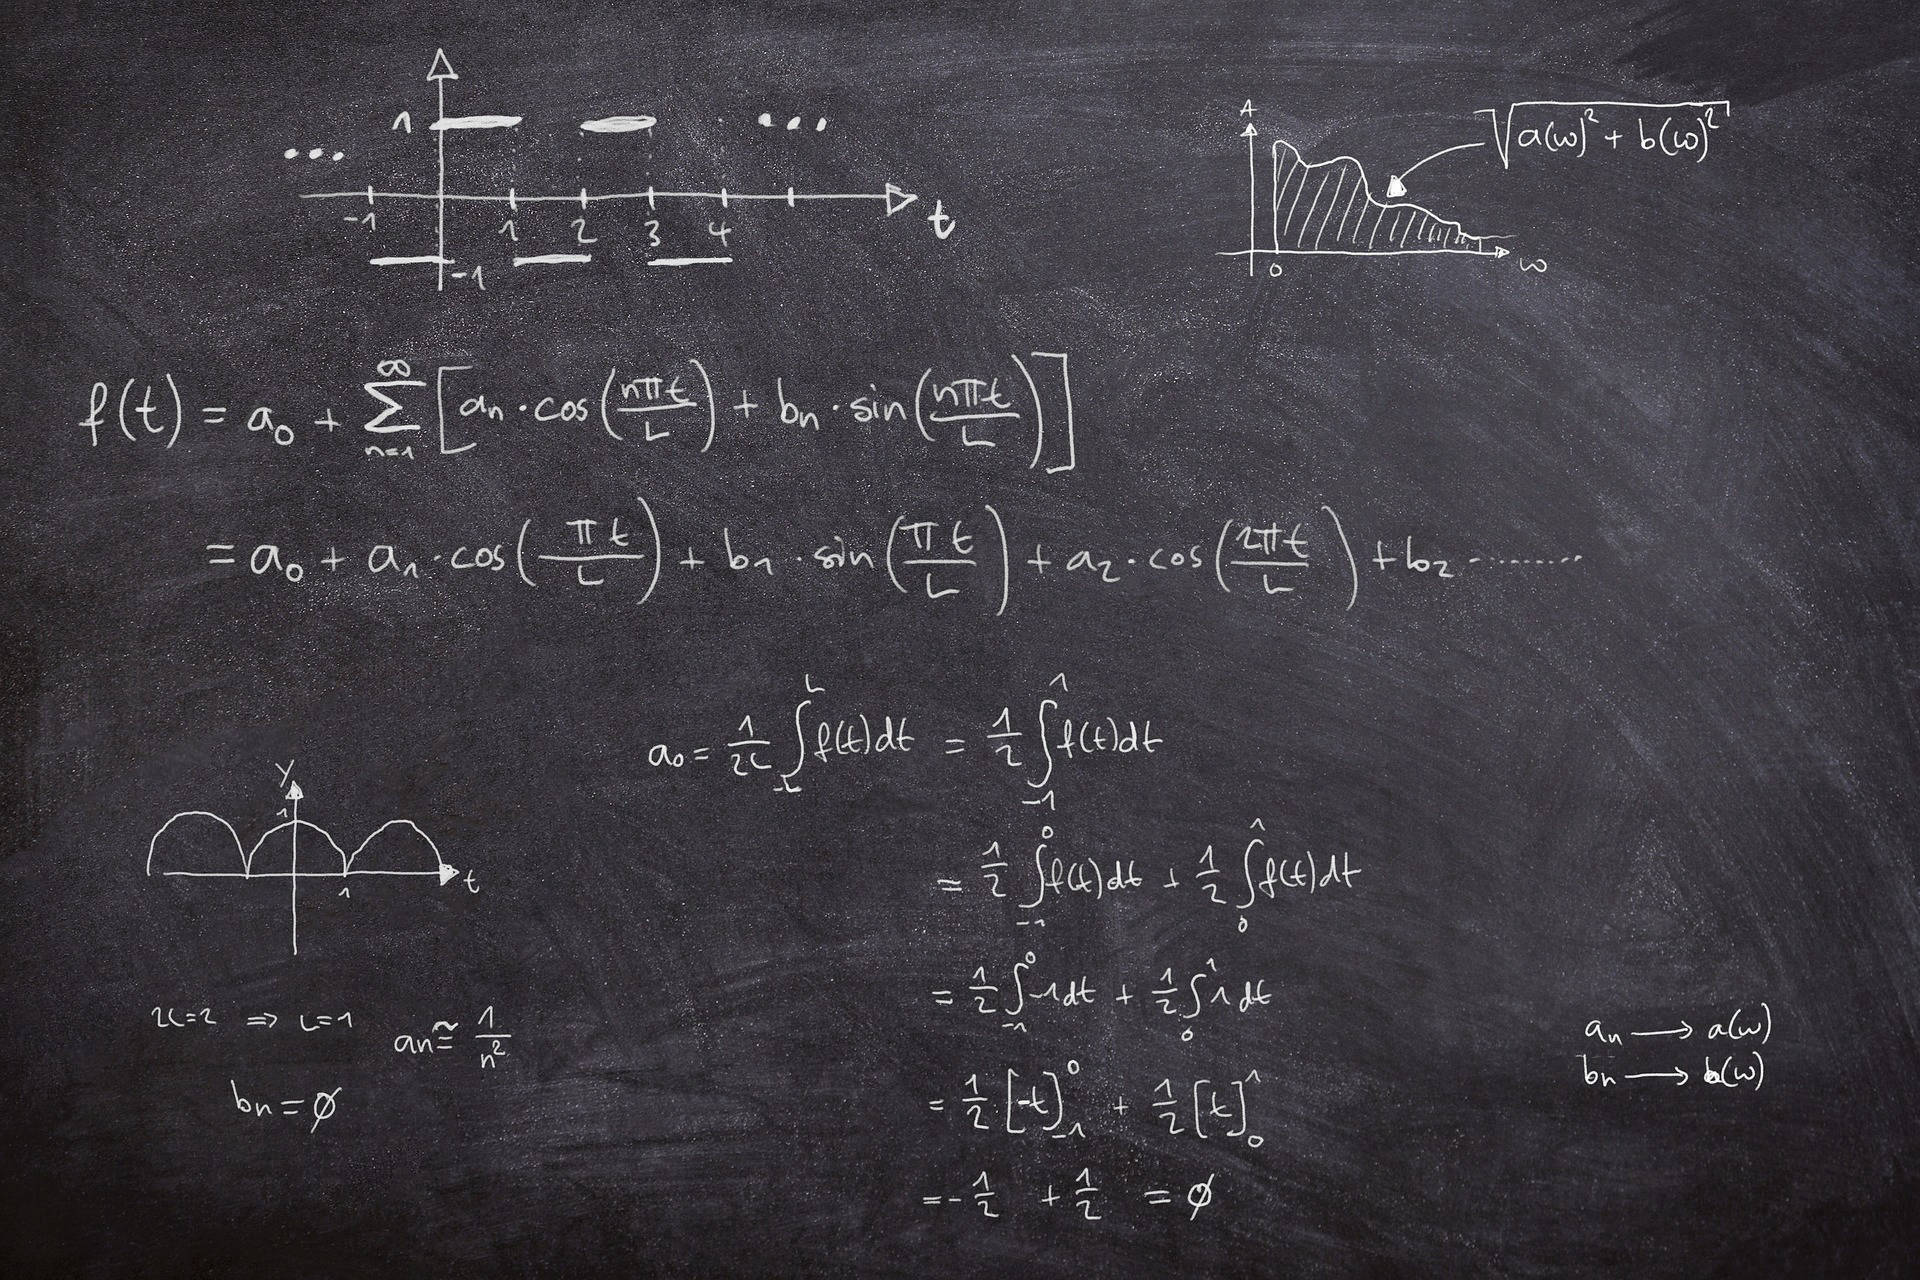 1
... ...
-1 1 2 3 4 t
-1
A
√(a(ω)² + b(ω)²)
0 ω
f(t) = a₀ + ∑ₙ₌₁^∞ [aₙ · cos(nπt/L) + bₙ · sin(nπt/L)]
= a₀ + a₁ · cos(πt/L) + b₁ · sin(πt/L) + a₂ · cos(2πt/L) + b₂ ........
a₀ = 1/2L ∫₋L^L f(t)dt = 1/2 ∫₋₁^1 f(t)dt
= 1/2 ∫₋₁^0 f(t)dt + 1/2 ∫₀^1 f(t)dt
= 1/2 ∫₋₁^0 -1dt + 1/2 ∫₀^1 1dt
= 1/2 [-t]₋₁^0 + 1/2 [t]₀^1
= -1/2 + 1/2 = ∅
y
1
t
1
2L=2 ⇒ L=1
aₙ ≅ 1/n²
bₙ = ∅
aₙ → a(ω)
bₙ → b(ω)